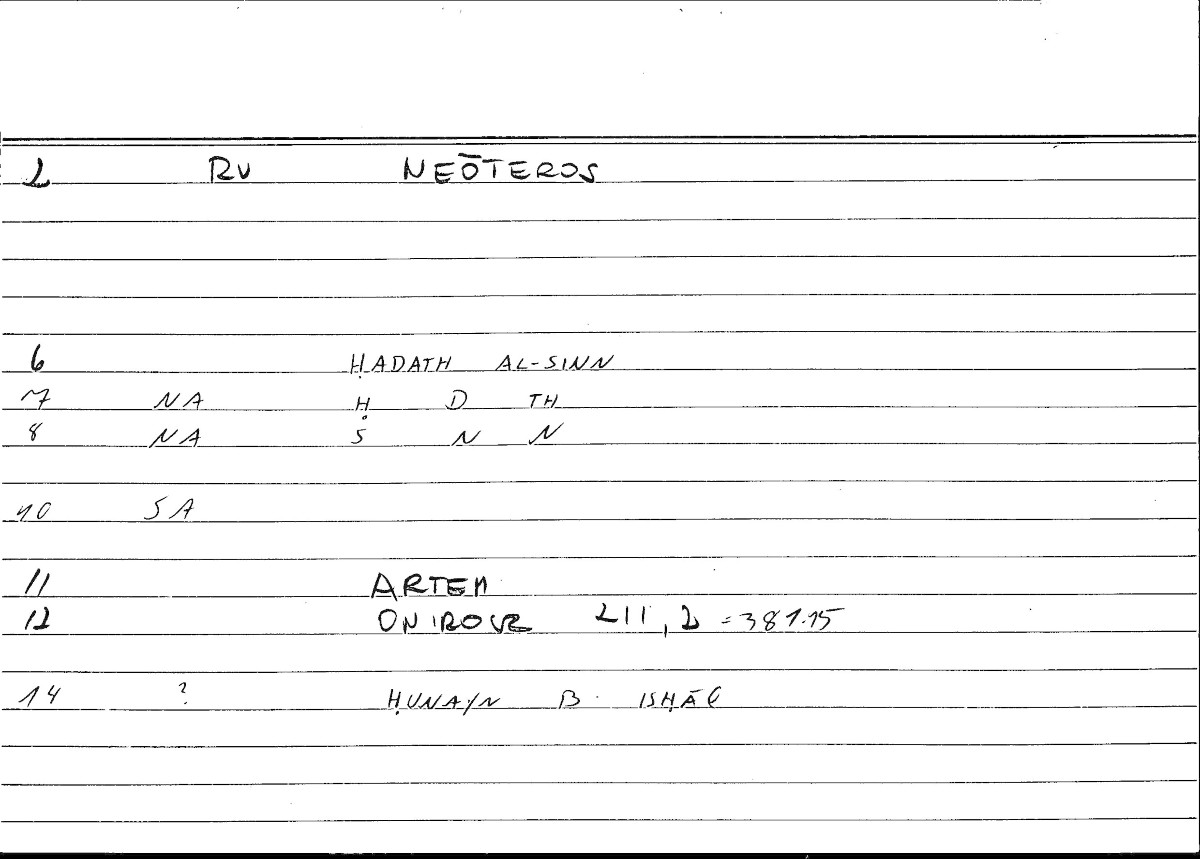 2 RV NEŌTEROS
6 ḤADATH AL-SINN
7 NA Ḥ D TH
8 NA S N N
10 SA
11 ARTEM
12 ONIROCR 211, 2 = 381.15
14 ? ḤUNAYN B. ISḤĀQ